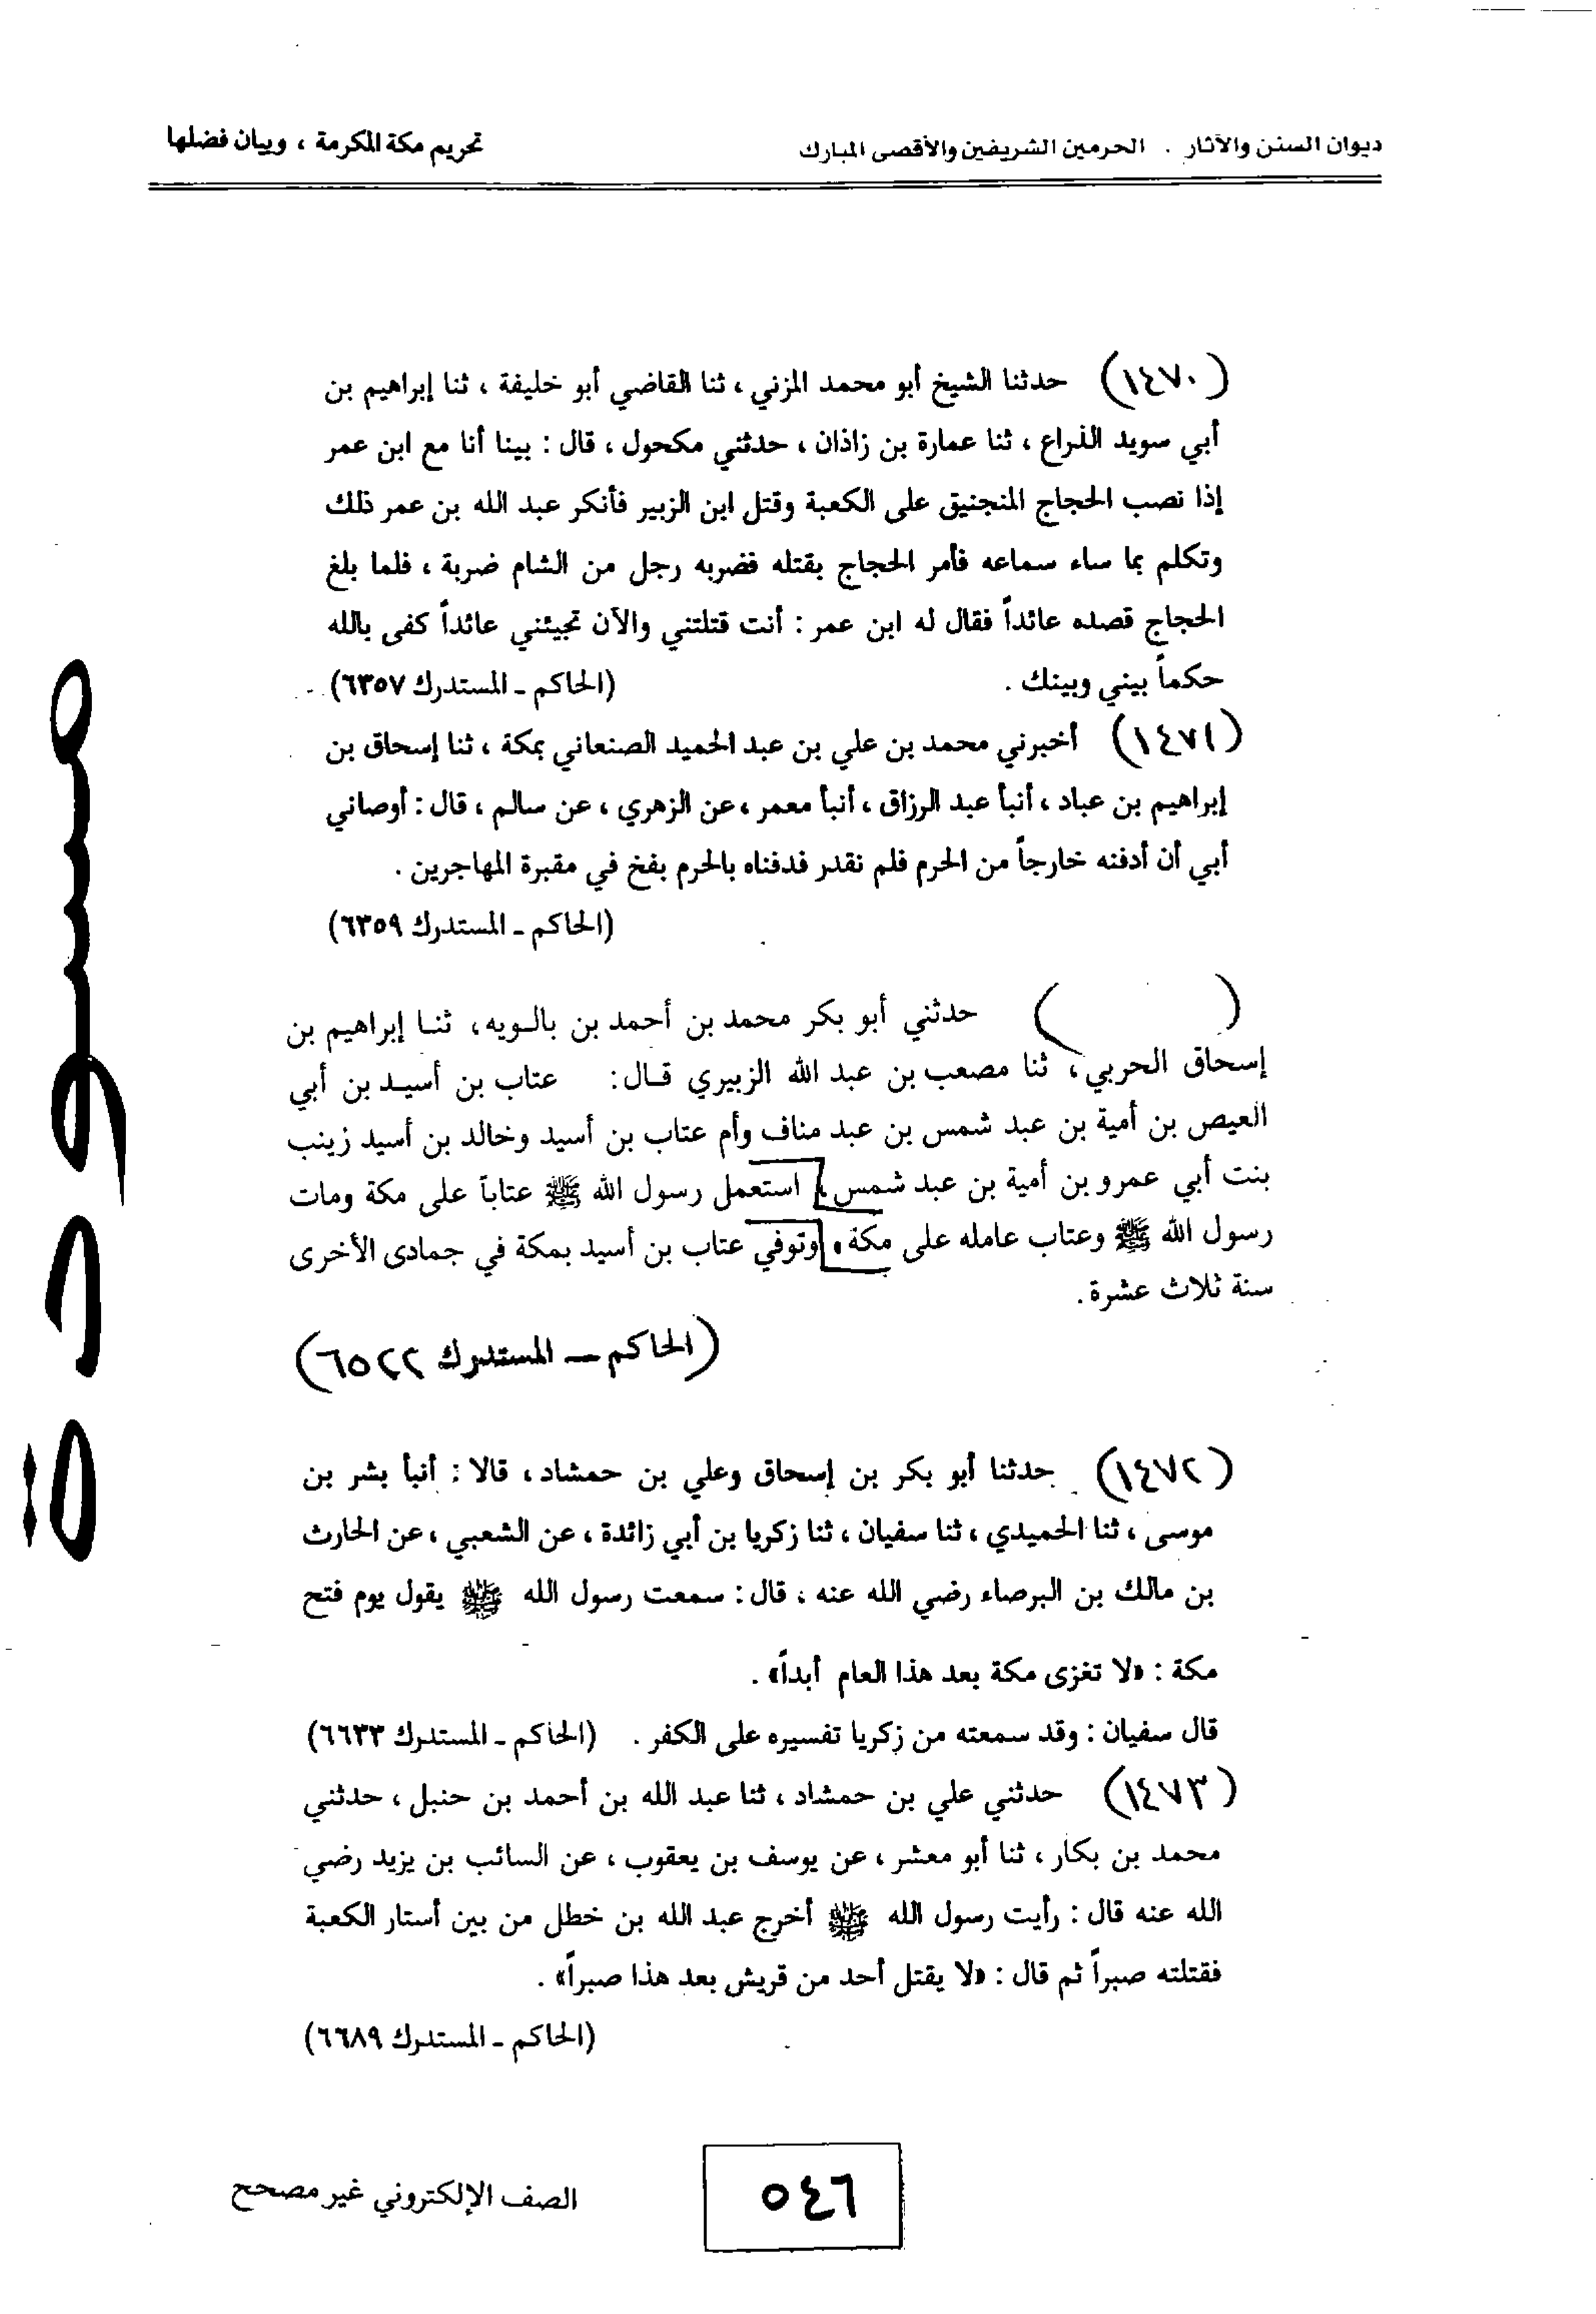 ديوان السنن والآثار . الحرمين الشريفين والأقصى المبارك
تحريم مكة المكرمة ، وبيان فضلها
(١٤٧٠) حدثنا الشيخ أبو محمد المزني ، ثنا القاضي أبو خليفة ، ثنا إبراهيم بن
أبي سويد الذراع ، ثنا عمارة بن زاذان ، حدثني مكحول ، قال : بينا أنا مع ابن عمر
إذا نصب الحجاج المنجنيق على الكعبة وقتل ابن الزبير فأنكر عبد الله بن عمر ذلك
وتكلم بما ساء سماعه فأمر الحجاج بقتله فضربه رجل من الشام ضربة ، فلما بلغ
الحجاج قصده عائداً فقال له ابن عمر : أنت قتلتني والآن تجيئني عائداً كفى بالله
حكماً بيني وبينك . (الحاكم ـ المستدرك ٦٣٥٧)
(١٤٧١) أخبرني محمد بن علي بن عبد الحميد الصنعاني بمكة ، ثنا إسحاق بن
إبراهيم بن عباد ، أنبأ عبد الرزاق ، أنبأ معمر ، عن الزهري ، عن سالم ، قال : أوصاني
أبي أن أدفنه خارجاً من الحرم فلم نقدر فدفناه بالحرم بفخ في مقبرة المهاجرين .
(الحاكم ـ المستدرك ٦٣٥٩)
( ) حدثني أبو بكر محمد بن أحمد بن بالـويه، ثنـا إبراهيم بن
إسحاق الحربي، ثنا مصعب بن عبد الله الزبيري قـال: عتاب بن أسيـد بن أبي
العيص بن أمية بن عبد شمس بن عبد مناف وأم عتاب بن أسيد وخالد بن أسيد زينب
بنت أبي عمرو بن أمية بن عبد شمس، استعمل رسول الله ﷺ عتاباً على مكة ومات
رسول الله ﷺ وعتاب عامله على مكة، وتوفي عتاب بن أسيد بمكة في جمادى الأخرى
سنة ثلاث عشرة.
(الحاكم — المستدرك ٦٥٢٢)
(١٤٧٢) حدثنا أبو بكر بن إسحاق وعلي بن حمشاد ، قالا : أنبأ بشر بن
موسى ، ثنا الحميدي ، ثنا سفيان ، ثنا زكريا بن أبي زائدة ، عن الشعبي ، عن الحارث
بن مالك بن البرصاء رضي الله عنه ، قال : سمعت رسول الله ﷺ يقول يوم فتح
مكة : «لا تغزى مكة بعد هذا العام أبداً» .
قال سفيان : وقد سمعته من زكريا تفسيره على الكفر . (الحاكم ـ المستدرك ٦٦٣٣)
(١٤٧٣) حدثني علي بن حمشاد ، ثنا عبد الله بن أحمد بن حنبل ، حدثني
محمد بن بكار ، ثنا أبو معشر ، عن يوسف بن يعقوب ، عن السائب بن يزيد رضي
الله عنه قال : رأيت رسول الله ﷺ أخرج عبد الله بن خطل من بين أستار الكعبة
فقتلته صبراً ثم قال : «لا يقتل أحد من قريش بعد هذا صبراً» .
(الحاكم ـ المستدرك ٦٦٨٩)
مسودة
٥٤٦
الصف الإلكتروني غير مصحح